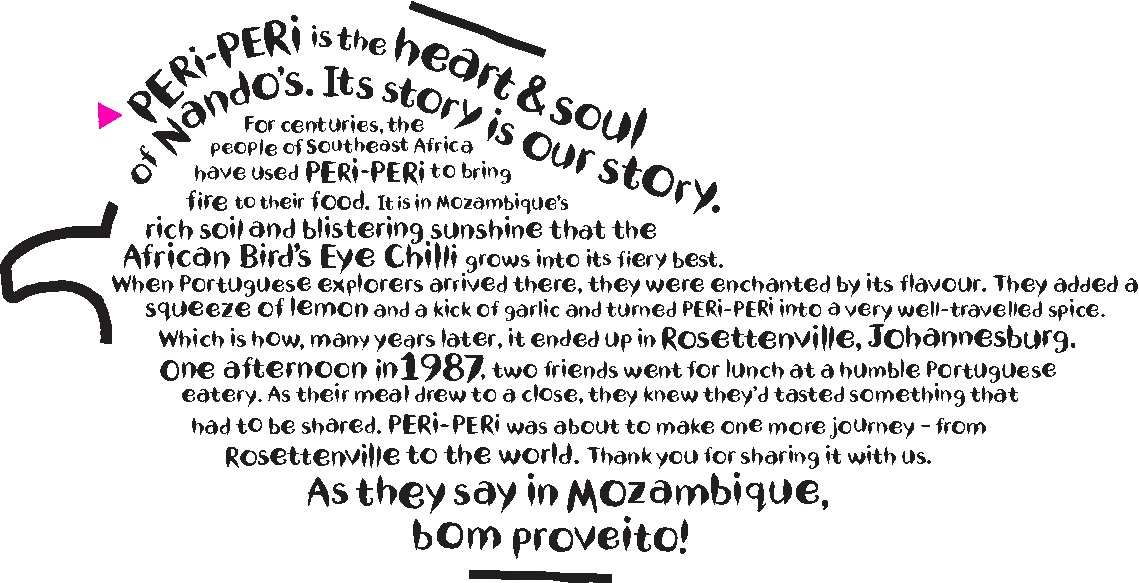 PERi-PERi is the heart & soul
of Nando's. Its story is our story.
For centuries, the
people of Southeast Africa
have used PERi-PERi to bring
fire to their food. It is in Mozambique's
rich soil and blistering sunshine that the
African Bird's Eye Chilli grows into its fiery best.
When Portuguese explorers arrived there, they were enchanted by its flavour. They added a
squeeze of lemon and a kick of garlic and turned PERi-PERi into a very well-travelled spice.
Which is how, many years later, it ended up in Rosettenville, Johannesburg.
One afternoon in 1987, two friends went for lunch at a humble Portuguese
eatery. As their meal drew to a close, they knew they'd tasted something that
had to be shared. PERi-PERi was about to make one more journey – from
Rosettenville to the world. Thank you for sharing it with us.
As they say in Mozambique,
bom proveito!